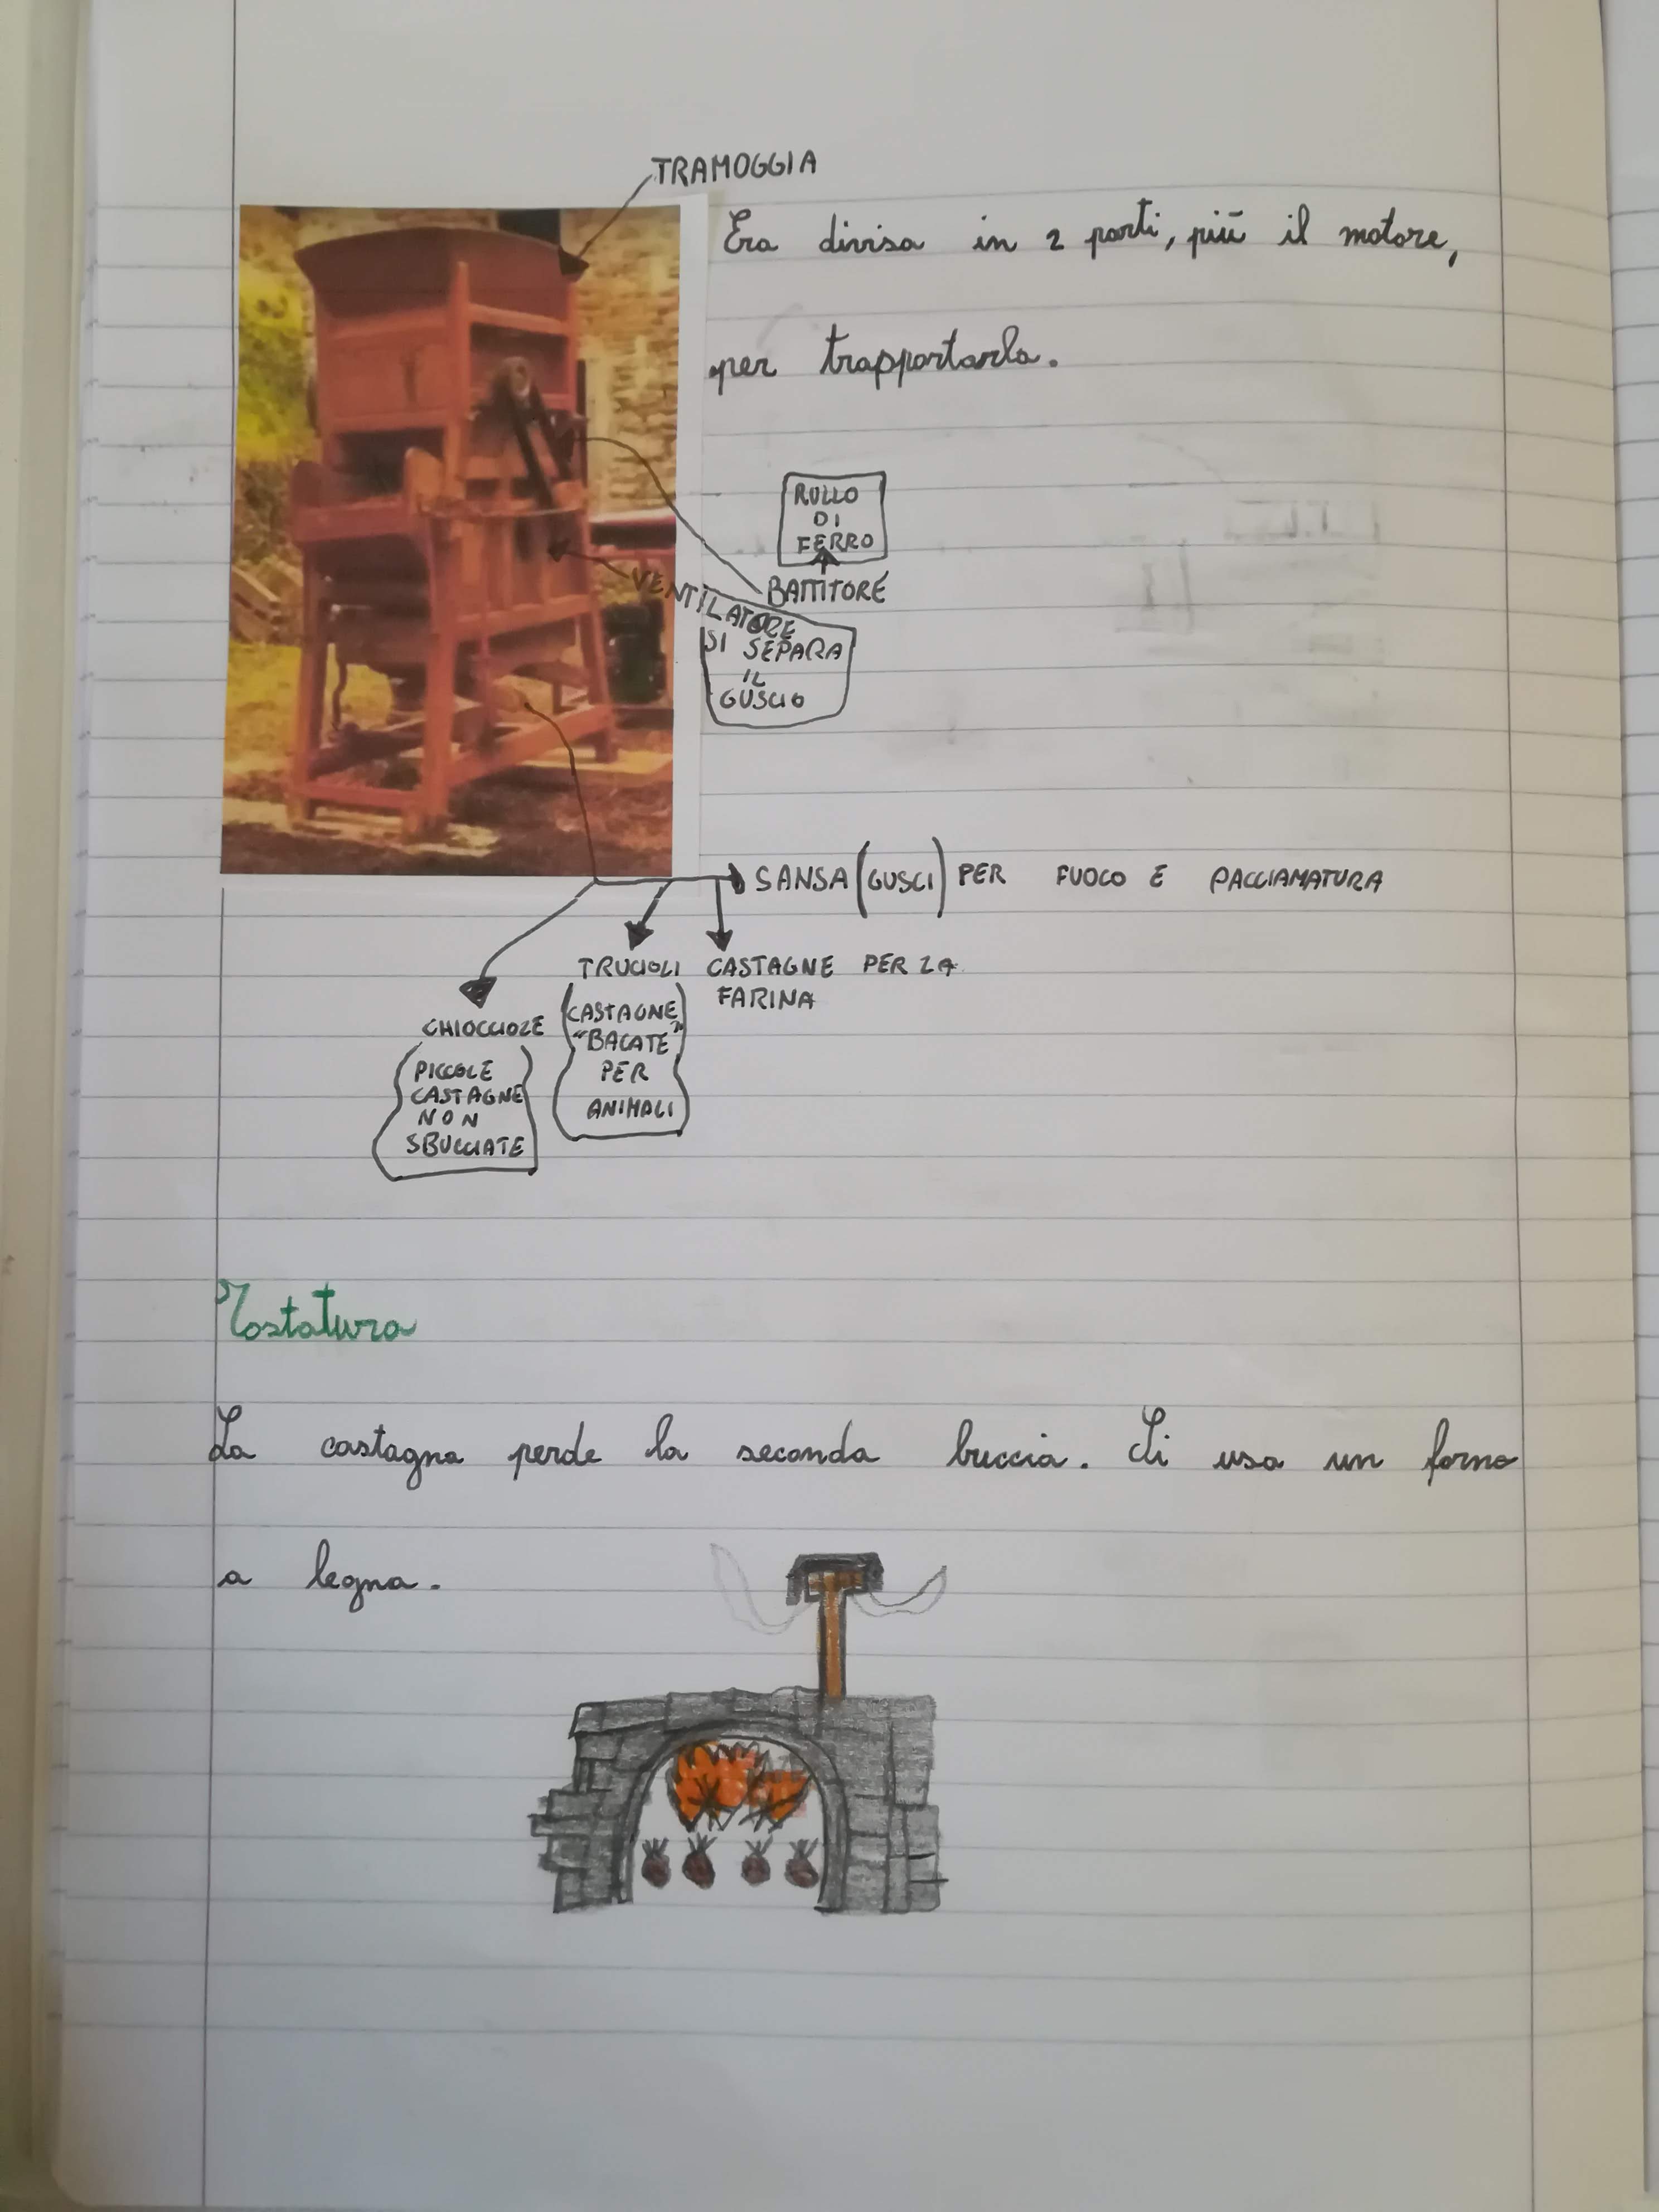 TRAMOGGIA
Era divisa in 2 parti, più il motore,
per trapportarla.
RULLO
DI
FERRO
BATTITORE
VENTILATORE
SI SEPARA
IL
GUSCIO
SANSA (GUSCI) PER FUOCO E PACCIAMATURA
TRUCIOLI
(CASTAGNE
"BACATE")
PER
ANIMALI
CASTAGNE PER LA
FARINA
CHIOCCIOLE
(PICCOLE
CASTAGNE)
NON
SBUCCIATE
Tostatura
La castagna perde la seconda buccia. Si usa un forno
a legna.